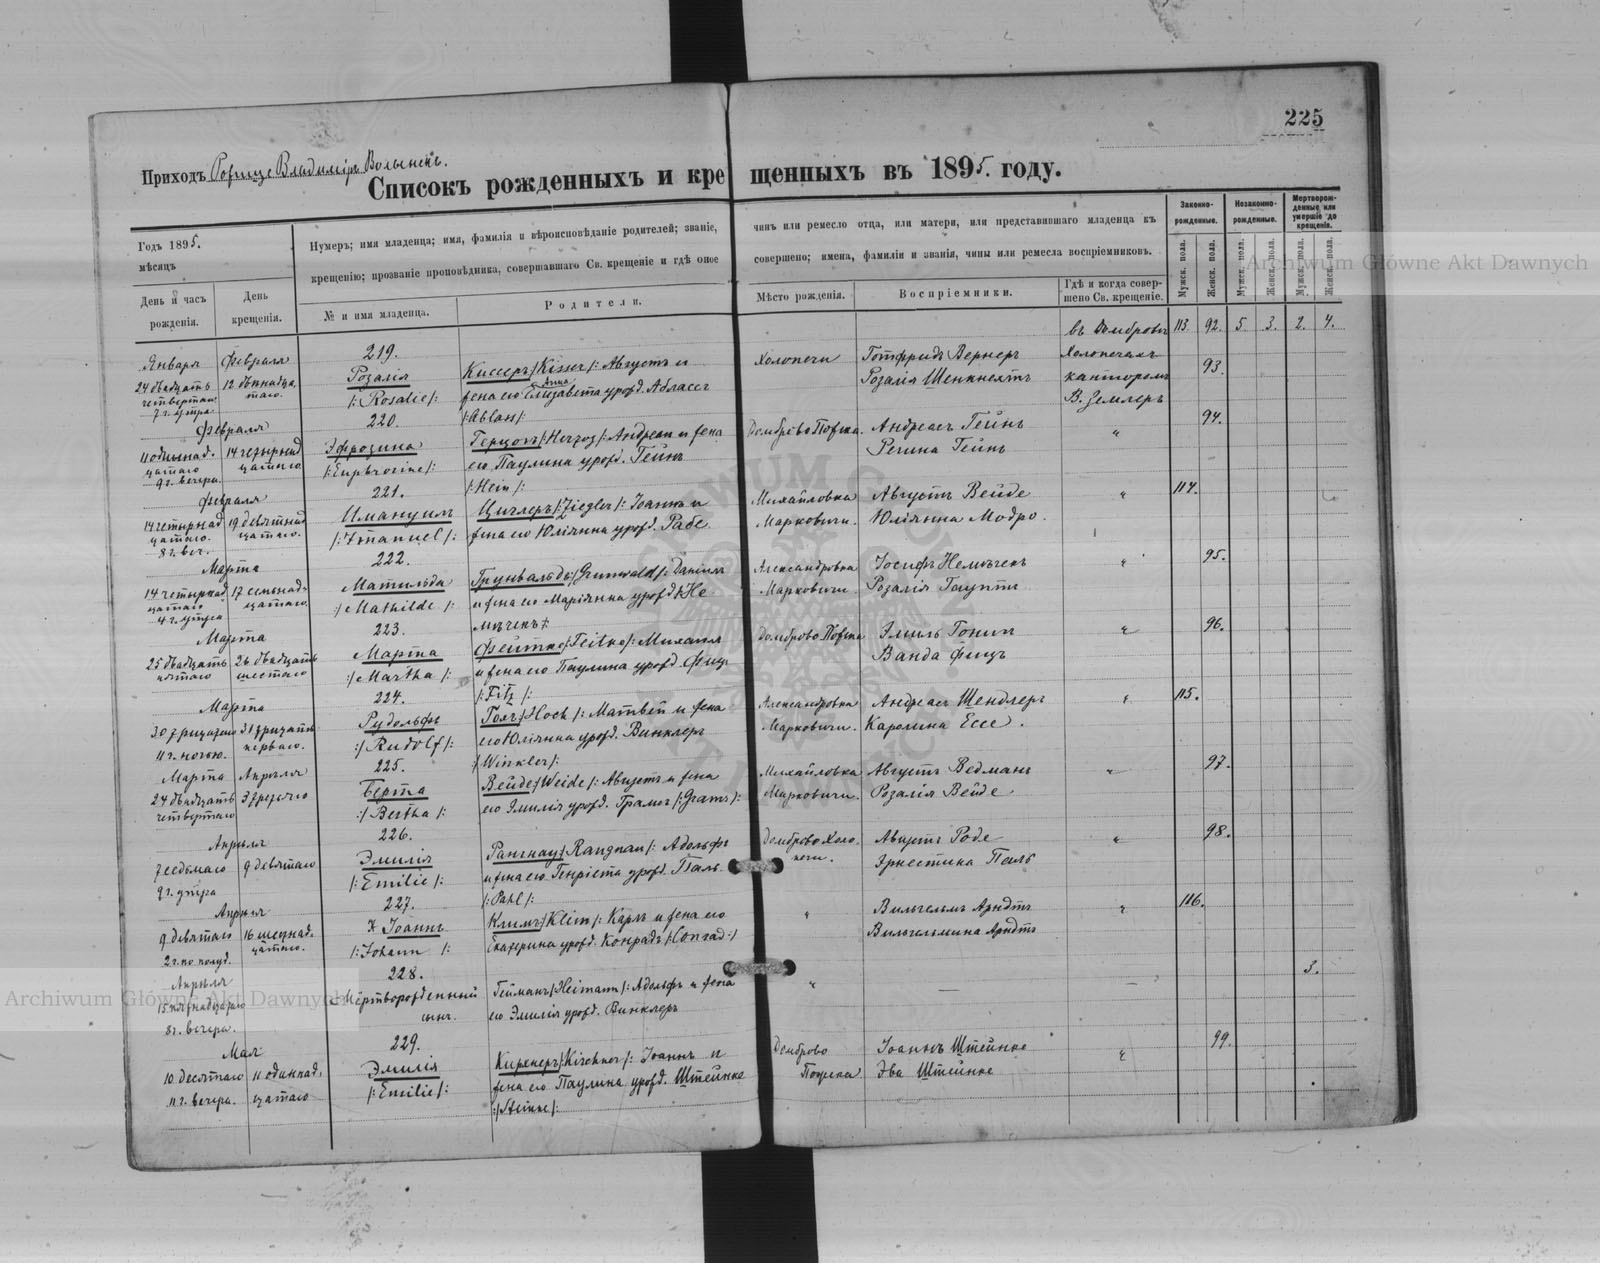 225
Приходъ Рожище Владиміръ Волынскъ.
Списокъ рожденныхъ и крещенныхъ въ 1895. году.
Годъ 1895.
мѣсяцъ
День и часъ рожденія.
День крещенія.
Нумеръ; имя младенца; имя, фамилія и вѣроисповѣданіе родителей; званіе, чинъ или ремесло отца, или матери, или представившаго младенца къ
крещенію; прозваніе проповѣдника, совершавшаго Св. крещеніе и гдѣ оное совершено; имена, фамиліи и званія, чины или ремесла воспріемниковъ.
№ и имя младенца.
Родители.
Мѣсто рожденія.
Воспріемники.
Гдѣ и когда совершено Св. крещеніе.
Законно-рожденные.
Незаконно-рожденные.
Мертворожденные или умершіе до крещенія.
Мужск. пола.
Женск. пола.
Мужск. пола.
Женск. пола.
Мужск. пола.
Женск. пола.
113. 92. 5. 3. 2. 4.
Января Февраля 219. въ Домброво
24 двадцать 12 двѣнадца Розалія Киссеръ /Kisser/: Августъ и Холопечи Готфридъ Вернеръ Холопечахъ 93.
четвертаго таго. /:Rosalie/: жена его Анна Елизавета урожд. Абласъ Розалія Шенкнехтъ канторомъ
7 г. утра /:Ablas/: В. Землеръ
Февраля 220.
11 одиннад. 14 четырнад Эфрозина Герцогъ /Herzog/: Андреасъ и жена Домброво Андреасъ Гейнъ " 94.
цатаго цатаго /:Euphrosine/: его Паулина урожд. Гейнъ Регина Гейнъ
9 г. вечера /:Hein/:
Февраля 221.
14 четырнад 19 девятнад Имануилъ Циглеръ /Ziegler/: Іоаннъ и Михайловка Августъ Вейде " 114.
цатаго. цатаго. /:Imanuel/: жена его Юліянна урожд. Рабе Марковичи. Юліянна Модро.
8 г. веч.
Марта 222.
14 четырнад 17 семнад- Матильда Грунвальдъ /Grunwald/: Даніилъ Александровка Іосифъ Немѣчекъ " 95.
цатаго цатаго. :/Mathilde/: и жена его Маріянна урожд. Не Марковичи Розалія Гауптъ
4 г. утра мѣчекъ/:
Марта 223.
25 двадцать 26 двадцать Марта Фейтко /Feitko/: Михаилъ Домброво Эмиль Гонигъ " 96.
пятаго шестаго :/Martha/: и жена его Паулина урожд. Фицъ Ванда Фицъ
/:Fitz/:
Марта 224.
30 тридцатаго 31 тридцать Рудольфъ Гохъ /Hoch/: Матвей и жена Александровка Андреасъ Шендлеръ " 115.
11 г. ночью. перваго. :/Rudolf/: его Юліянна урожд. Винклеръ Марковичи. Каролина Ессе.
:/Winkler/:
Марта Апрѣля 225.
24 двадцать 3 третяго Берта Вейде /Weide/: Августъ и жена Михайловка Августъ Ведманъ " 97.
четвертаго :/Bertha/: его Эмилія урожд. Грамсъ /:Grams/: Марковичи. Розалія Вейде
Апрѣля 226.
7 седьмаго 9 девятаго Эмилія Рангнау /Rangnau/: Адольфъ Домброво Холо- Августъ Роде " 98.
9 г. утра /:Emilie/: и жена его Генріета урожд. Паль Эрнестина Паль
/:Pahl/:
Апрѣля 227.
9 девятаго 16 шестнад. Іоаннъ Климъ /Klim/: Карлъ и жена его " Вильгельмъ Арндтъ " 116.
2 г. по полуд. цатаго. /:Johann/: Екатерина урожд. Конрадъ /:Conrad:/ Вильгельмина Арндтъ
Апрѣля 228. 3.
15 пятнадцатаго Мертворожденный Гейманъ /Heimann/: Адольфъ и жена " — —
8 г. вечера. сынъ. его Эмилія урожд. Винклеръ
Мая 229.
10 десятаго 11 одиннад. Эмилія Кирхнеръ /Kirchner/: Іоаннъ и Домброво Іоаннъ Штейнке " 99.
11 г. вечера. цатаго /:Emilie/: жена его Паулина урожд. Штейнке Эва Штейнке
:/Steinke/:
Archiwum Główne Akt Dawnych
Archiwum Główne Akt Dawnych